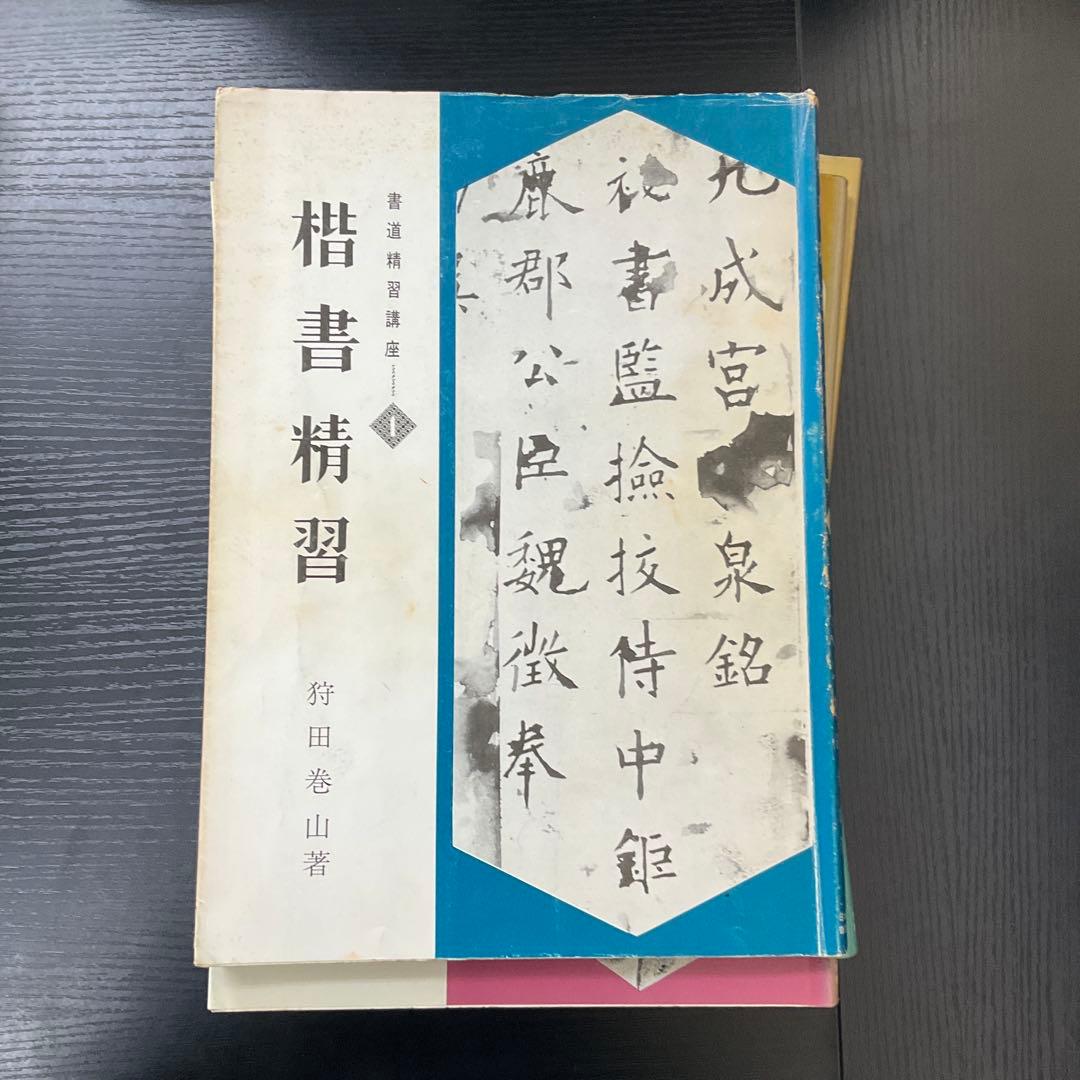 書道精習講座
1
楷書精習
狩田巻山著
九成宮泉銘
秘書監撿挍侍中鉅
鹿郡公臣魏徴奉